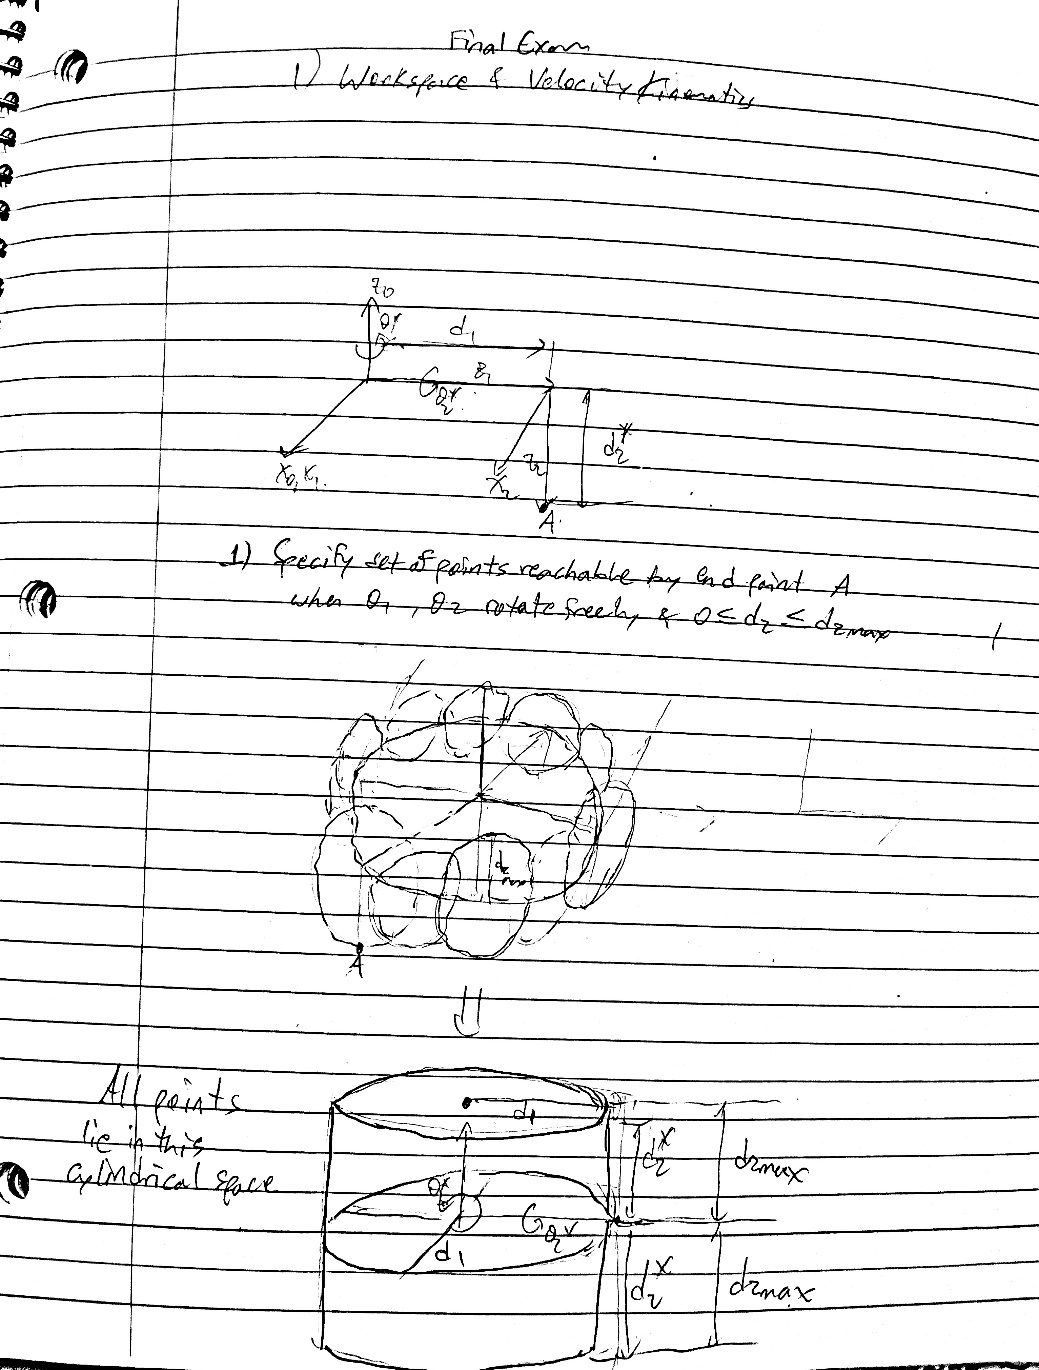 Final Exam
1) Workspace & Velocity Kinematics
z₀
θ₁*
d₁
z₁
θ₂*
d₂*
x₀, x₁
x₂
z₂
A
1) Specify set of points reachable by end point A
when θ₁, θ₂ rotate freely & 0 ≤ d₂ ≤ d₂max
d₂max
A
⇓
All points
lie in this
cylindrical space
d₁
d₂*
d₂max
θ₂*
d₁
d₂*
d₂max